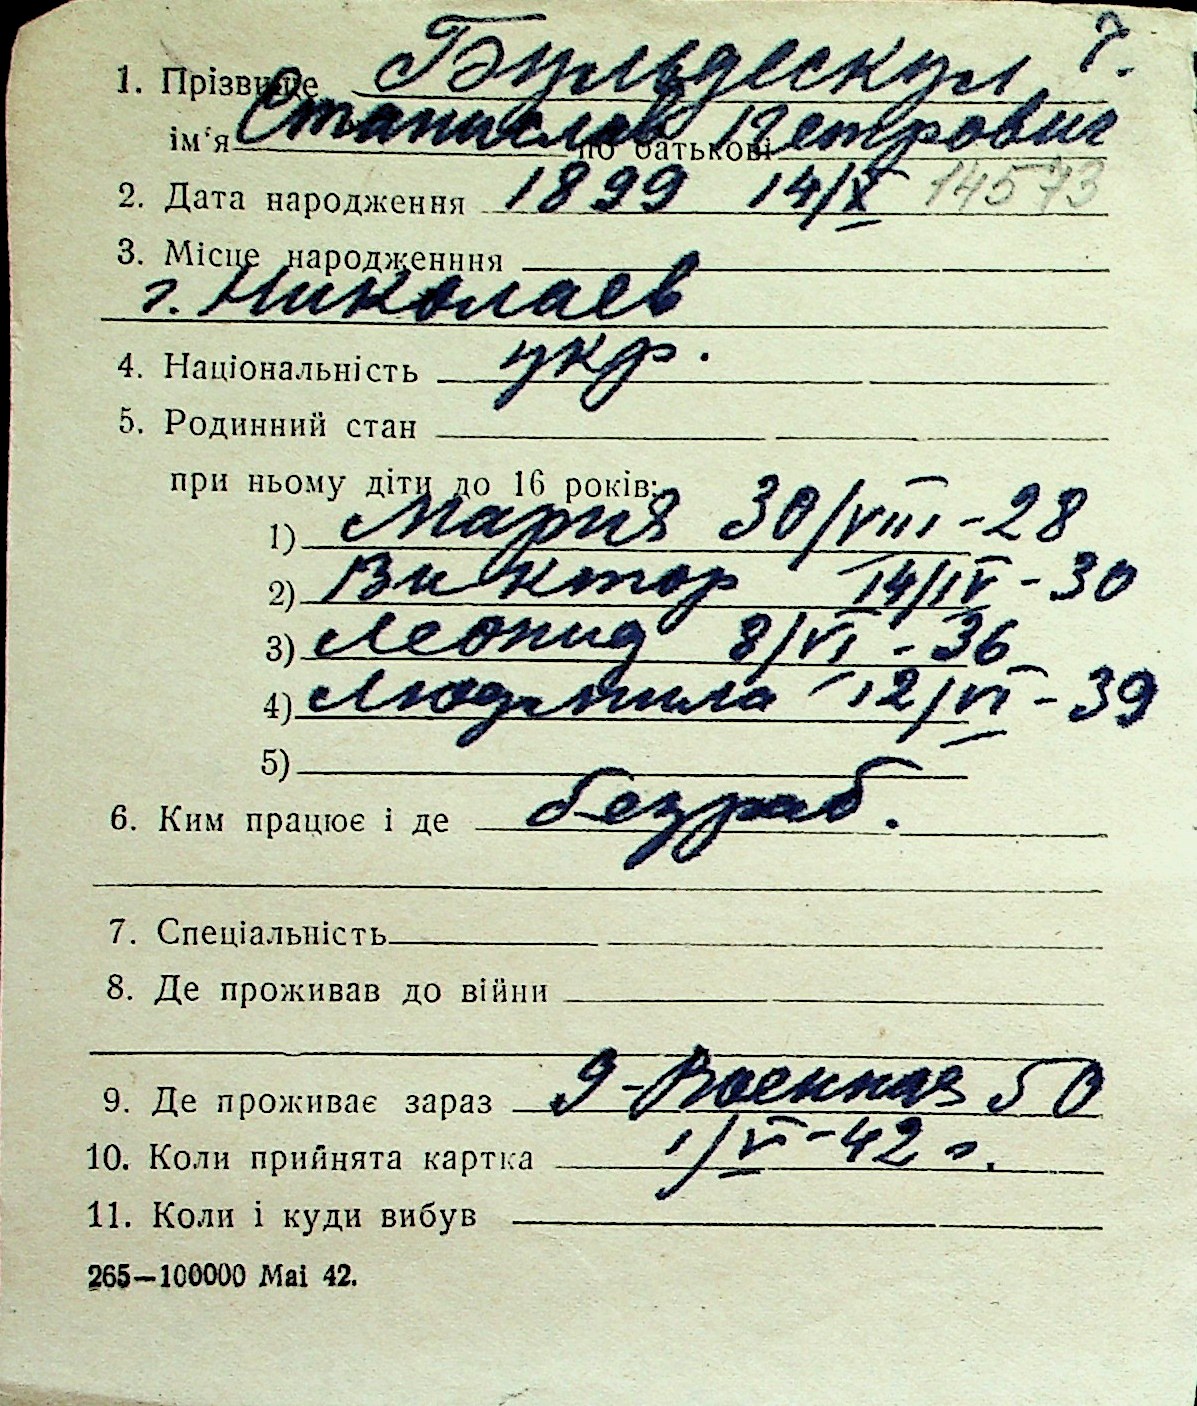 7.
1. Прізвище Бульдескул
ім'я Станислав по батькові Петрович
2. Дата народження 1899 14/X 14573
3. Місце народженння
г. Николаев
4. Національність укр.
5. Родинний стан
при ньому діти до 16 років:
1) Мария 30/VIII-28
2) Виктор 14/IV-30
3) Леонид 8/VI-36
4) Людмила 12/VI-39
5)
6. Ким працює і де безраб.
7. Спеціальність
8. Де проживав до війни
9. Де проживає зараз 9-Военная 50
10. Коли прийнята картка 1/VI-42 г.
11. Коли і куди вибув
265—100000 Mai 42.